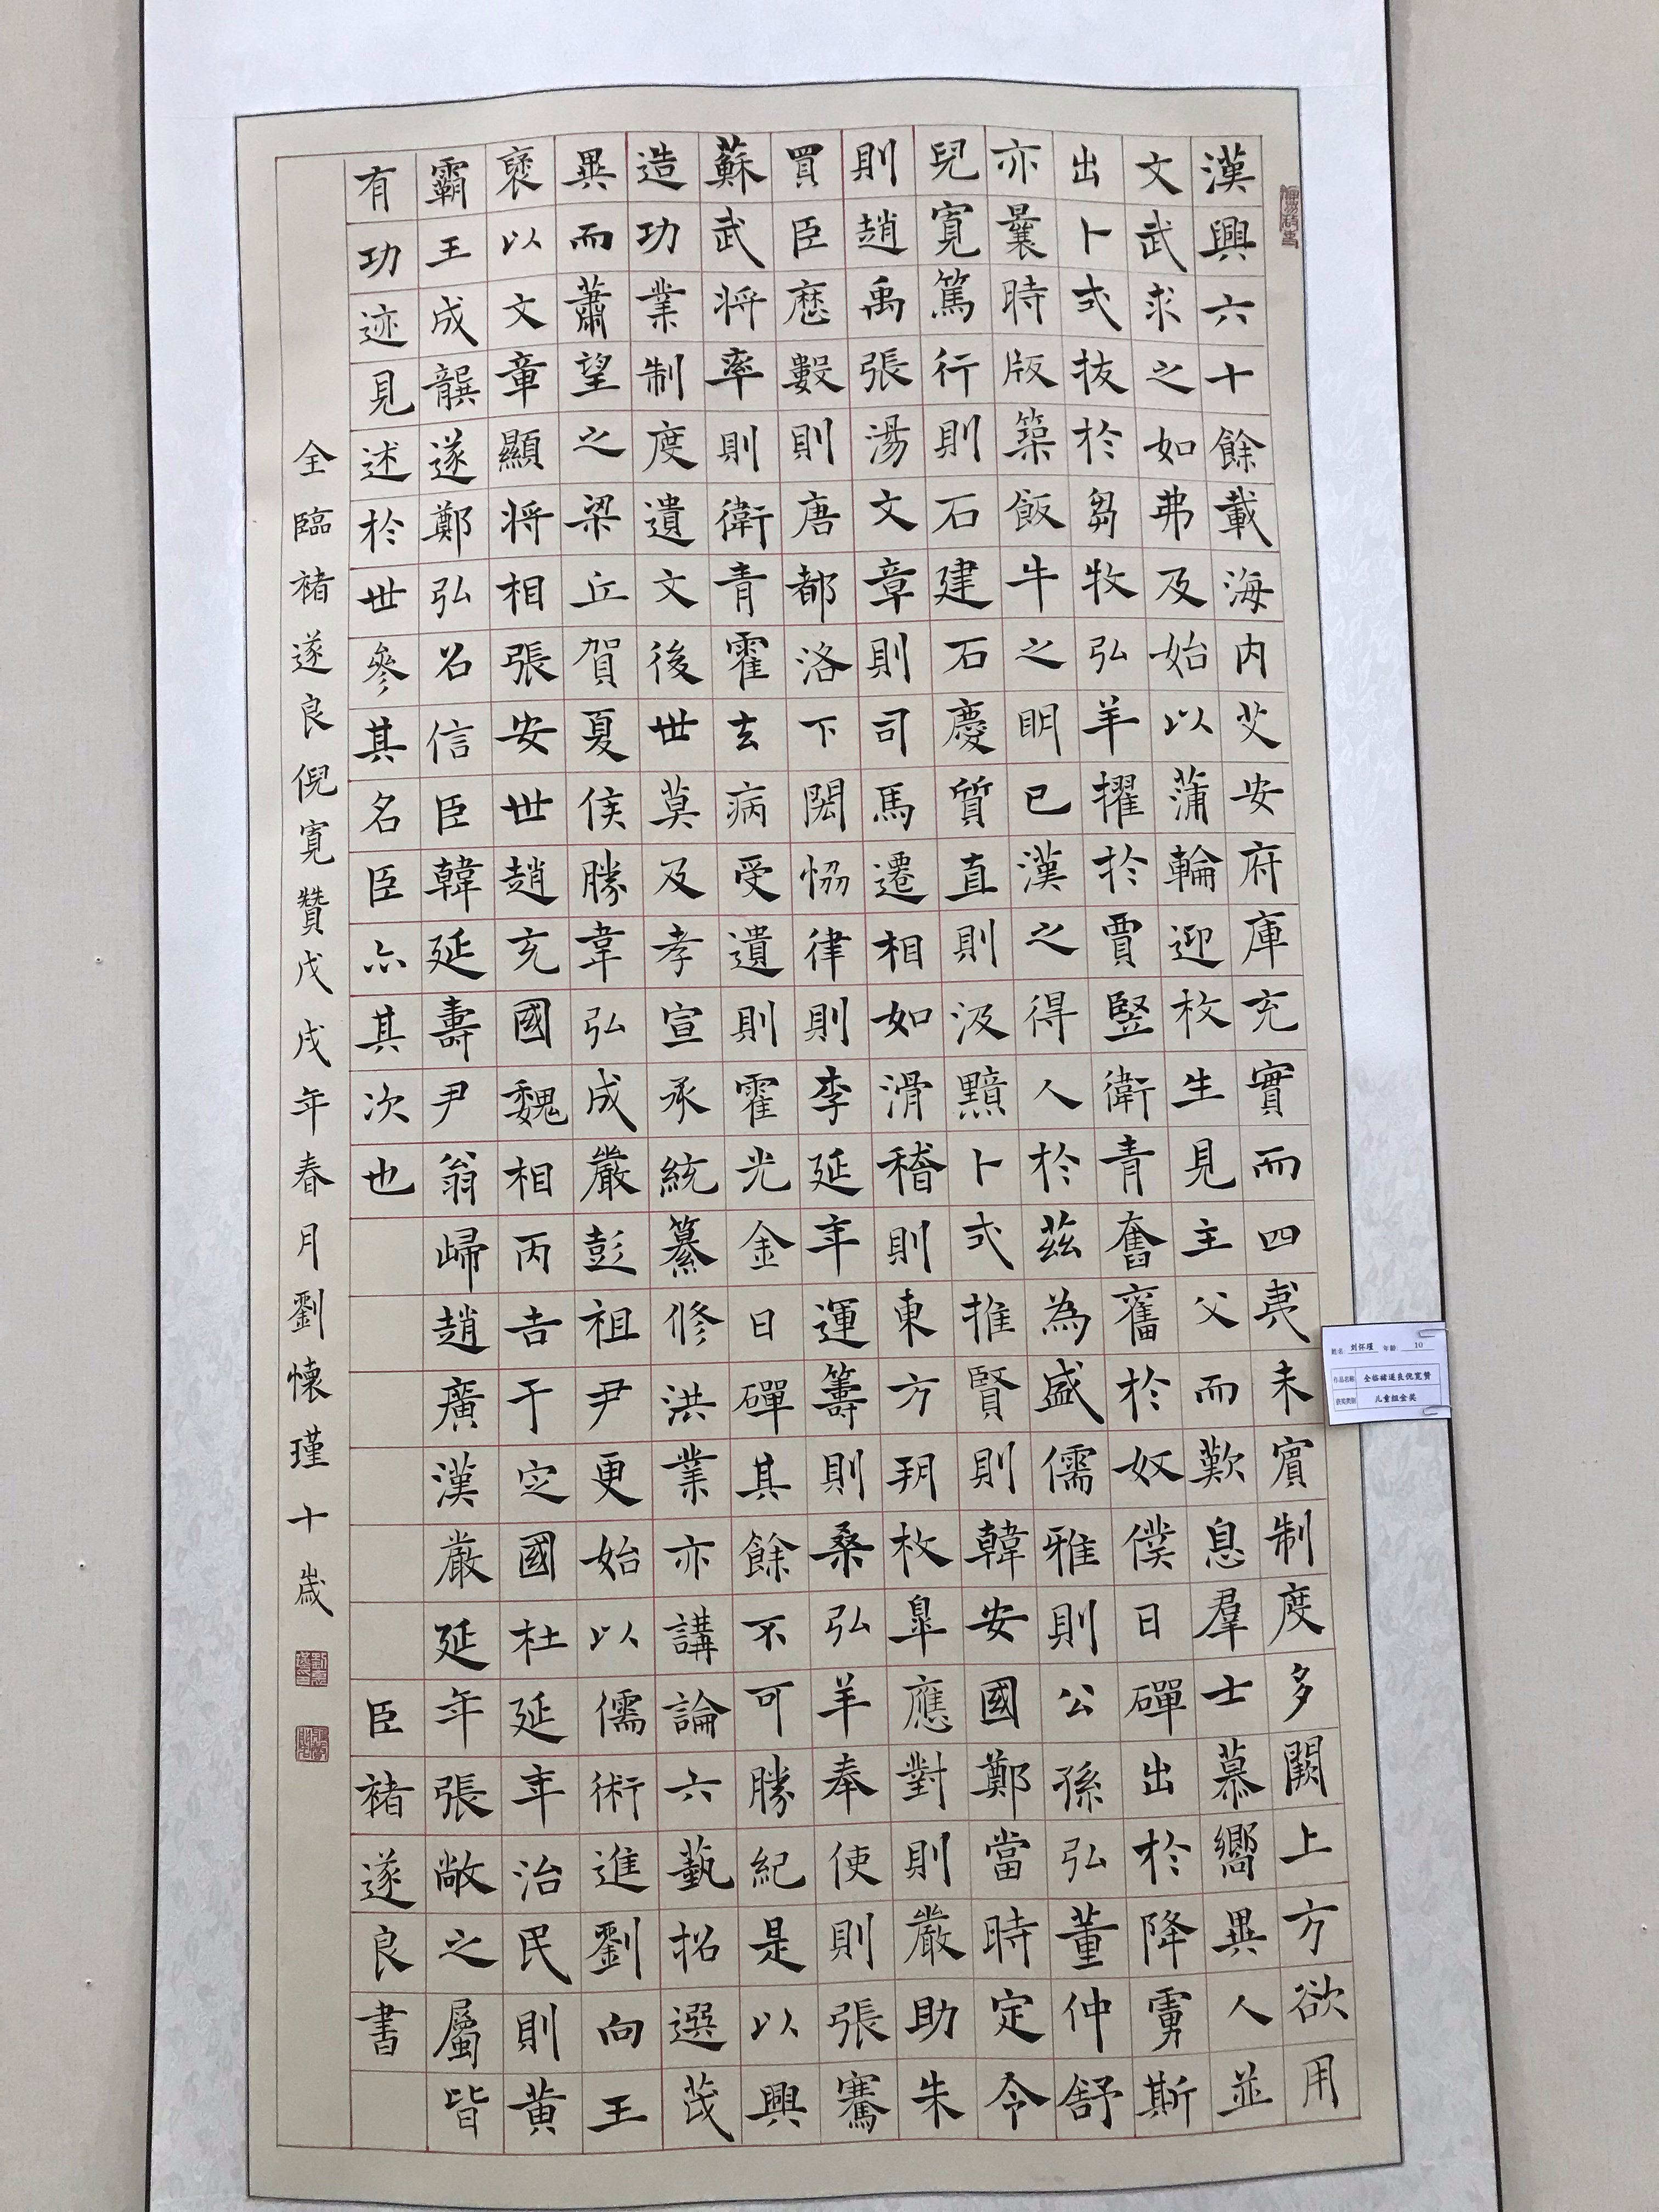 漢興六十餘載海内艾安府庫充實而四夷未賓制度多闕上方欲用
文武求之如弗及始以蒲輪迎枚生見主父而歎息羣士慕嚮異人並
出卜式拔於芻牧弘羊擢於賈竪衛青奮舊於奴僕日磾出於降虜斯
亦曩時版築飯牛之明已漢之得人於茲為盛儒雅則公孫弘董仲舒
兒寬篤行則石建石慶質直則汲黯卜式推賢則韓安國鄭當時定令
則趙禹張湯文章則司馬遷相如滑稽則東方朔枚皋應對則嚴助朱
買臣歷數則唐都洛下閎恊律則李延年運籌則桑弘羊奉使則張騫
蘇武將率則衛青霍去病受遺則霍光金日磾其餘不可勝紀是以興
造功業制度遺文後世莫及孝宣承統纂修洪業亦講論六藝招選茂
異而蕭望之梁丘賀夏侯勝韋弘成嚴彭祖尹更始以儒術進劉向王
襃以文章顯將相張安世趙充國魏相丙吉于定國杜延年治民則黃
霸王成龔遂鄭弘召信臣韓延壽尹翁歸趙廣漢嚴延年張敞之屬皆
有功迹見述於世參其名臣亦其次也 臣褚遂良書
全臨褚遂良倪寬贊戊戌年春月劉懷瑾十歲
姓名 刘怀瑾 年龄 10
作品名称 全临褚遂良倪宽赞
获奖类别 儿童组金奖